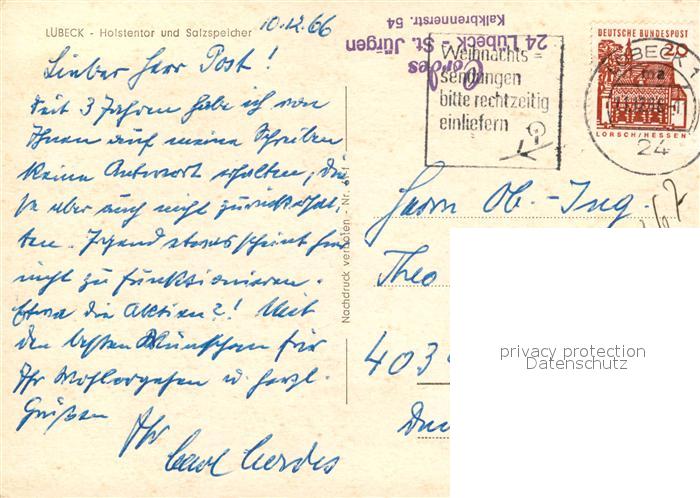 LÜBECK - Holstentor und Salzspeicher
10.12.66
Lieber Herr Post!
Seit 3 Jahren habe ich von
Ihnen auf meine Schreiben
keine Antwort erhalten, die-
se aber auch nicht zurückerhal-
ten. Irgend etwas scheint hier
nicht zu funktionieren.
Etwa die Aktien?! Mit
den besten Wünschen für
Ihr Wohlergehen u. herzl.
Grüßen
Ihr
Carl Cordes
Nachdruck verboten - Nr.
Cordes
24 Lübeck - St. Jürgen
Kalkbrennerstr. 54
Weihnachts=
sendungen
bitte rechtzeitig
einliefern
DEUTSCHE BUNDESPOST
20
LORSCH/HESSEN
LÜBECK
24
Herrn Ob.-Ing.
Theo
403
privacy protection
Datenschutz